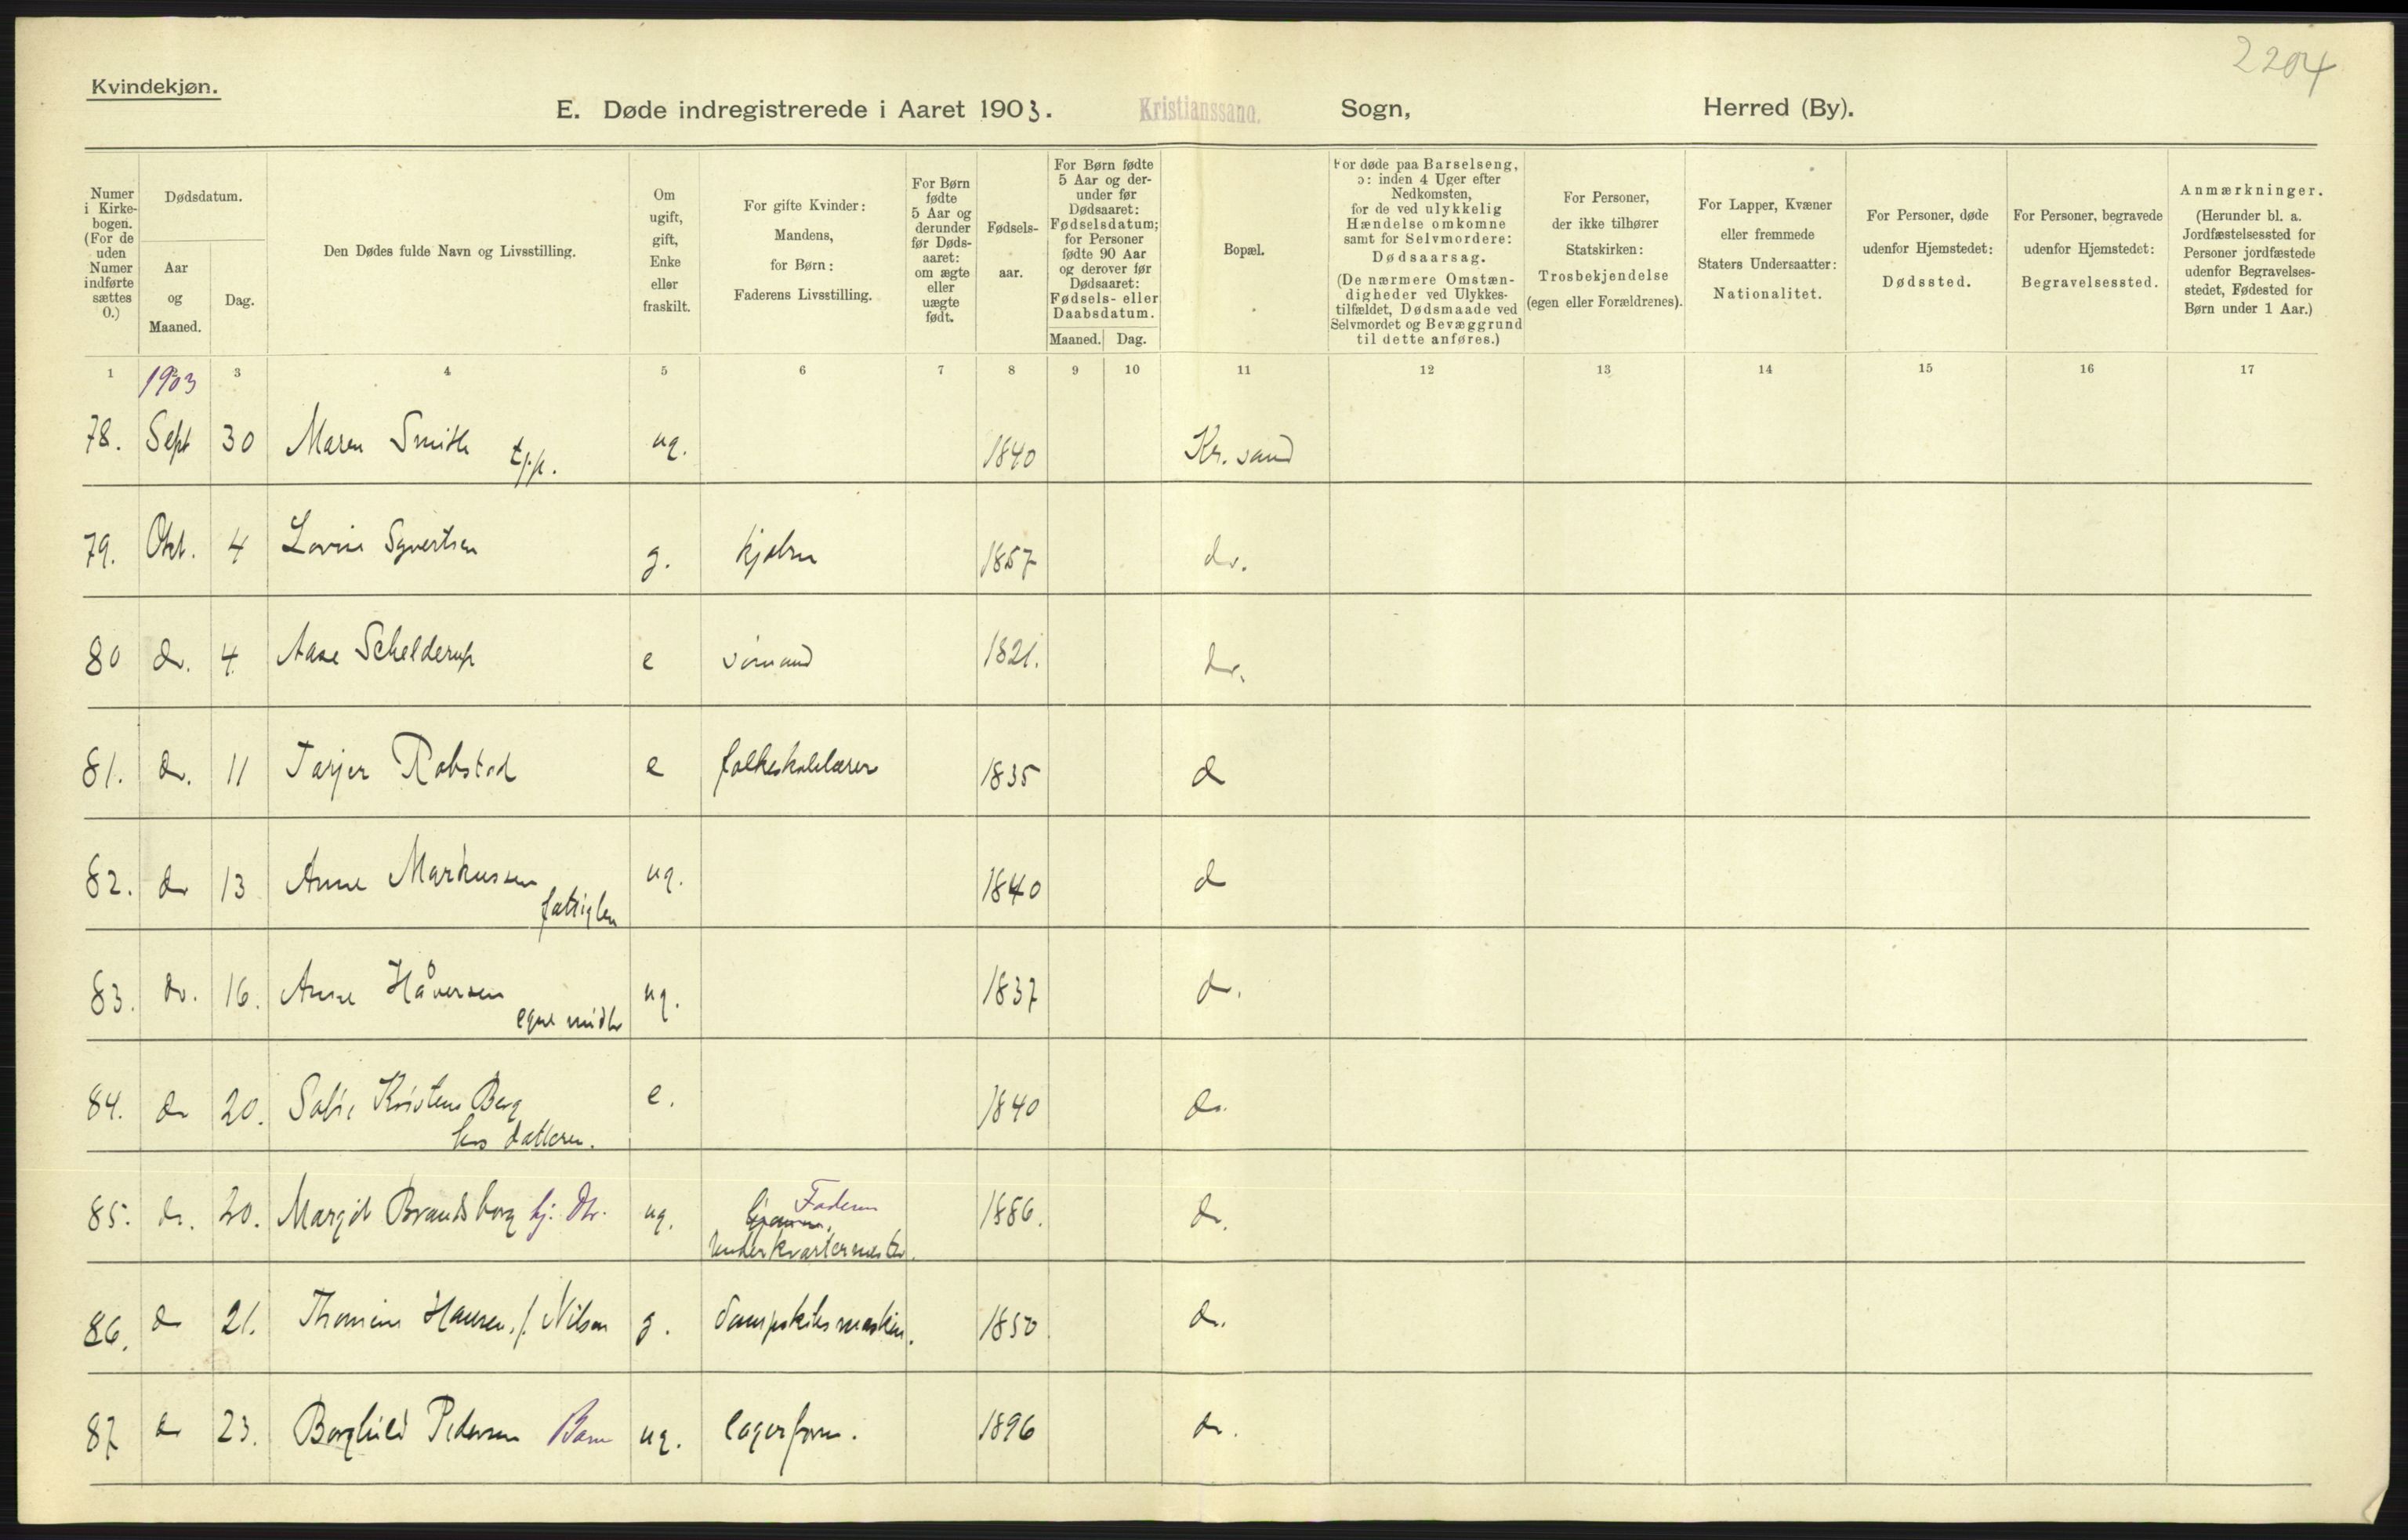 2204
Kvindekjøn.
E. Døde indregistrerede i Aaret 1903. Kristianssand. Sogn, Herred (By).
Numer i Kirke-bogen. (For de uden Numer indførte sættes 0.)
Dødsdatum.
Aar og Maaned.
Dag.
Den Dødes fulde Navn og Livsstilling.
Om ugift, gift, Enke eller fraskilt.
For gifte Kvinder: Mandens, for Børn: Faderens Livsstilling.
For Børn fødte 5 Aar og derunder før Døds-aaret: om ægte eller uægte født.
Fødsels-aar.
For Børn fødte 5 Aar og der-under før Dødsaaret: Fødselsdatum; for Personer fødte 90 Aar og derover før Dødsaaret: Fødsels- eller Daabsdatum.
Maaned. Dag.
Bopæl.
For døde paa Barselseng, ɔ: inden 4 Uger efter Nedkomsten, for de ved ulykkelig Hændelse omkomne samt for Selvmordere: Dødsaarsag. (De nærmere Omstæn-digheder ved Ulykkes-tilfældet, Dødsmaade ved Selvmordet og Bevæggrund til dette anføres.)
For Personer, der ikke tilhører Statskirken: Trosbekjendelse (egen eller Forældrenes).
For Lapper, Kvæner eller fremmede Staters Undersaatter: Nationalitet.
For Personer, døde udenfor Hjemstedet: Dødssted.
For Personer, begravede udenfor Hjemstedet: Begravelsessted.
Anmærkninger. (Herunder bl. a. Jordfæstelsessted for Personer jordfæstede udenfor Begravelses-stedet, Fødested for Børn under 1 Aar.)
1 3 4 5 6 7 8 9 10 11 12 13 14 15 16 17
1903
78. Sept 30 Maren Smith ug. 1840 Kr.sand
79. Okt. 4 Lovise Syvertsen g. 1857 do.
80 do. 4. Aase Schelderup e sømand 1821. do.
81. do. 11 Tarjer Robstad e folkeskolelærer 1835 do
82. do 13 Anne Markussen fattiglem ug. 1840 do
83. do. 16. Anne Håversen egne midler ug. 1837 do.
84. do 20. Berg hos datteren. e. 1840 do.
85. do. 20. Margit Brandsborg hj. Dtr. ug. Faderen Underkvartermester. 1886. do.
86. do 21. Thomine Hansen, f. Nilsen g. dampskibsmaskin. 1850. do.
87 do 23. Borghild Pedersen Barn ug. lagerform. 1896 do.